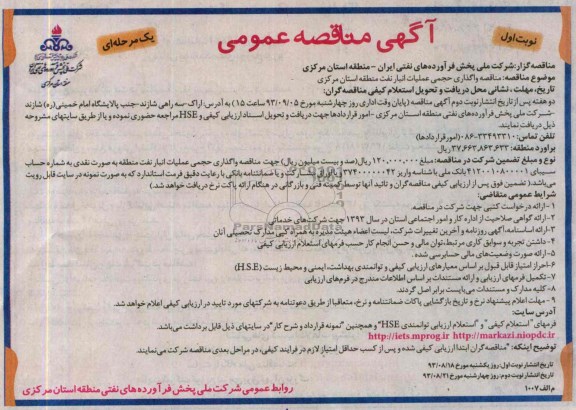 نوبت اول
آگهی مناقصه عمومی
یک مرحله‌ای
مناقصه گزار: شرکت ملی پخش فرآورده‌های نفتی ایران - منطقه استان مرکزی
موضوع مناقصه: مناقصه واگذاری حجمی عملیات انبار نفت منطقه استان مرکزی
تاریخ، مهلت، نشانی محل دریافت و تحویل استعلام کیفی مناقصه‌گران:
دو هفته پس از تاریخ انتشار نوبت دوم آگهی مناقصه (پایان وقت اداری روز چهارشنبه مورخ ۹۳/۰۹/۰۵ ساعت ۱۵) به آدرس: اراک-سه راهی شازند-جنب پالایشگاه امام خمینی(ره) شازند
-شرکت ملی پخش فرآورده‌های نفتی منطقه استان مرکزی - امور قراردادها جهت دریافت و تحویل اسناد ارزیابی کیفی و HSE مراجعه حضوری نموده و یا از طریق سایتهای مشروحه
ذیل دریافت نمایند.
تلفن تماس: ۳۳۴۹۳۳۱۰-۰۸۶ (امور قراردادها)
برآورد منطقه: ۳۷,۶۶۲,۸۶۳,۶۳۳ ریال
نوع و مبلغ تضمین شرکت در مناقصه: مبلغ ۱۲۰,۰۰۰,۰۰۰ ریال (صد و بیست میلیون ریال) جهت مناقصه واگذاری حجمی عملیات انبار نفت منطقه به صورت نقدی به شماره حساب
سیبای ۴۱۲۰۰۱۰۸۰۰۰۰۱ بانک ملی با شناسه واریز ۳۷۴۰۰۰۰۰۰۰۴۲ و یا ضمانتنامه بانکی با رعایت دقیق فرصت استاندارد که به صورت نمونه در سایت قابل رویت
می‌باشد. (تضمین فوق پس از ارزیابی کیفی مناقصه‌گران و تائید آنها توسط کمیته فنی و بازرگانی در هنگام ارائه پاکت نرخ دریافت خواهد شد.)
شرایط عمومی متقاضی:
۱- ارائه درخواست کتبی جهت شرکت در مناقصه.
۲- ارائه گواهی صلاحیت از اداره کار و امور اجتماعی استان در سال ۱۳۹۳ جهت شرکت‌های خدماتی
۳- ارائه اساسنامه، آگهی روزنامه و آخرین تغییرات شرکت، لیست اعضاء هیئت مدیره به همراه کپی مدارک تحصیلی آنان
۴- داشتن تجربه و سوابق کاری مرتبط، توان مالی و حسن انجام کار حسب فرمهای استعلام ارزیابی کیفی
۵- ارائه صورت وضعیت‌های مالی حسابرسی شده.
۶- احراز امتیاز قابل قبول بر اساس معیارهای ارزیابی کیفی و توانمندی بهداشت، ایمنی و محیط زیست (H.S.E)
۷- تکمیل فرمهای ارزیابی و ارائه مستندات مربوطه بر اساس اطلاعات مندرج در فرم‌های ارزیابی
۸- کلیه مدارک و مستندات می‌بایست برابر اصل گردند.
۹- مهلت اعلام پیشنهاد نرخ و تاریخ بازگشایی پاکات ضمانتنامه و نرخ، متعاقبا از طریق دعوتنامه به شرکتهای مورد تایید در ارزیابی کیفی اعلام خواهد شد.
آدرس سایت:
فرمهای "استعلام کیفی" و "استعلام ارزیابی توانمندی HSE" و همچنین "نمونه قرارداد و شرح کار" در سایتهای ذیل قابل برداشت می‌باشد.
http://iets.mprog.ir http://markazi.niopdc.ir
توضیح اینکه: "مناقصه‌گران ابتدا ارزیابی کیفی شده و پس از کسب حداقل امتیاز لازم در فرایند کیفی، در مراحل بعدی مناقصه شرکت می‌نمایند.
تاریخ انتشار نوبت اول: روز یکشنبه مورخ ۹۳/۰۸/۱۸
تاریخ انتشار نوبت دوم: روز چهارشنبه مورخ ۹۳/۰۸/۲۱
م الف ۱۰۰۷
روابط عمومی شرکت ملی پخش فرآورده‌های نفتی منطقه استان مرکزی